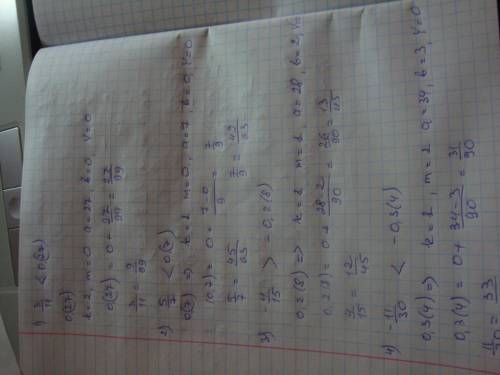 1) 3/11 < 0(27)
0(27)
k=2, m=0 a=27 b=0 Y=0
0(27) = 0 + 27/99 = 27/99
2) 5/7 < 0(7)
0(7) => m=0, a=7, b=0, Y=0
(0,7) = 0 = 7-0/9 = 7/9
5/7 = 45/63 7/9 = 49/63
3) -4/15 > -0,2(8)
0,2(8) => k=2 m=2 a=28, b=2, Y=
0,2(8) = 0 + 28-2/90 = 26/90 = 13/45
4/15 = 12/45
4) -11/30 < -0,3(4)
0,3(4) => k=2, m=2 a=34, b=3, Y=0
0,3(4) = 0 + 34-3/90 = 31/90
11/30 = 33